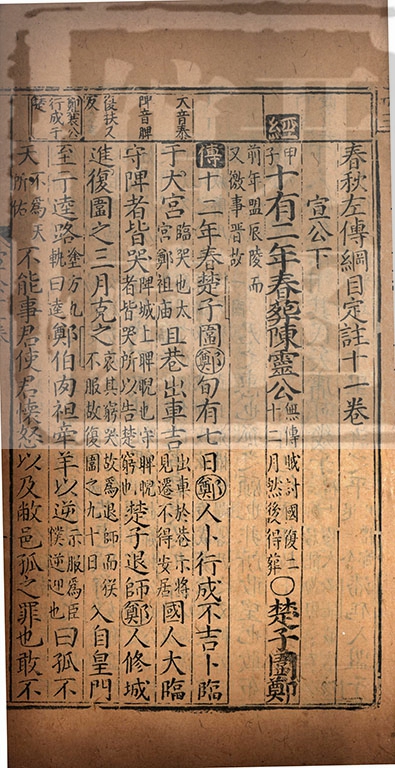 春秋左傳綱目定註十一卷
宣公下
經 甲子 十有二年春葬陳靈公 無傳賊討國復二十二月然後得葬 ○楚子圍鄭
前年盟辰陵而又徼事晉故
傳 十二年春楚子圍鄭旬有七日鄭人卜行成不吉卜臨
大音泰
于大宮 臨哭也太宮鄭祖廟 且巷出車吉 出車於巷示將見遷不得安居 國人大臨
陴音脾
守陴者皆哭 陴城上睥睨也守陴者皆哭所以告楚窮也 楚子退師鄭人修城
復扶又反
進復圍之三月克之 哀其窮哭故為退師而猶不服故復圍之九十日 入自皇門
鄭襄公行成于楚
至于逵路 塗方九軌曰逵 鄭伯肉袒牽羊以逆 示服為臣僕逆迎也 曰孤不
天 不為天所佑 不能事君使君懷怒以及敝邑孤之罪也敢不